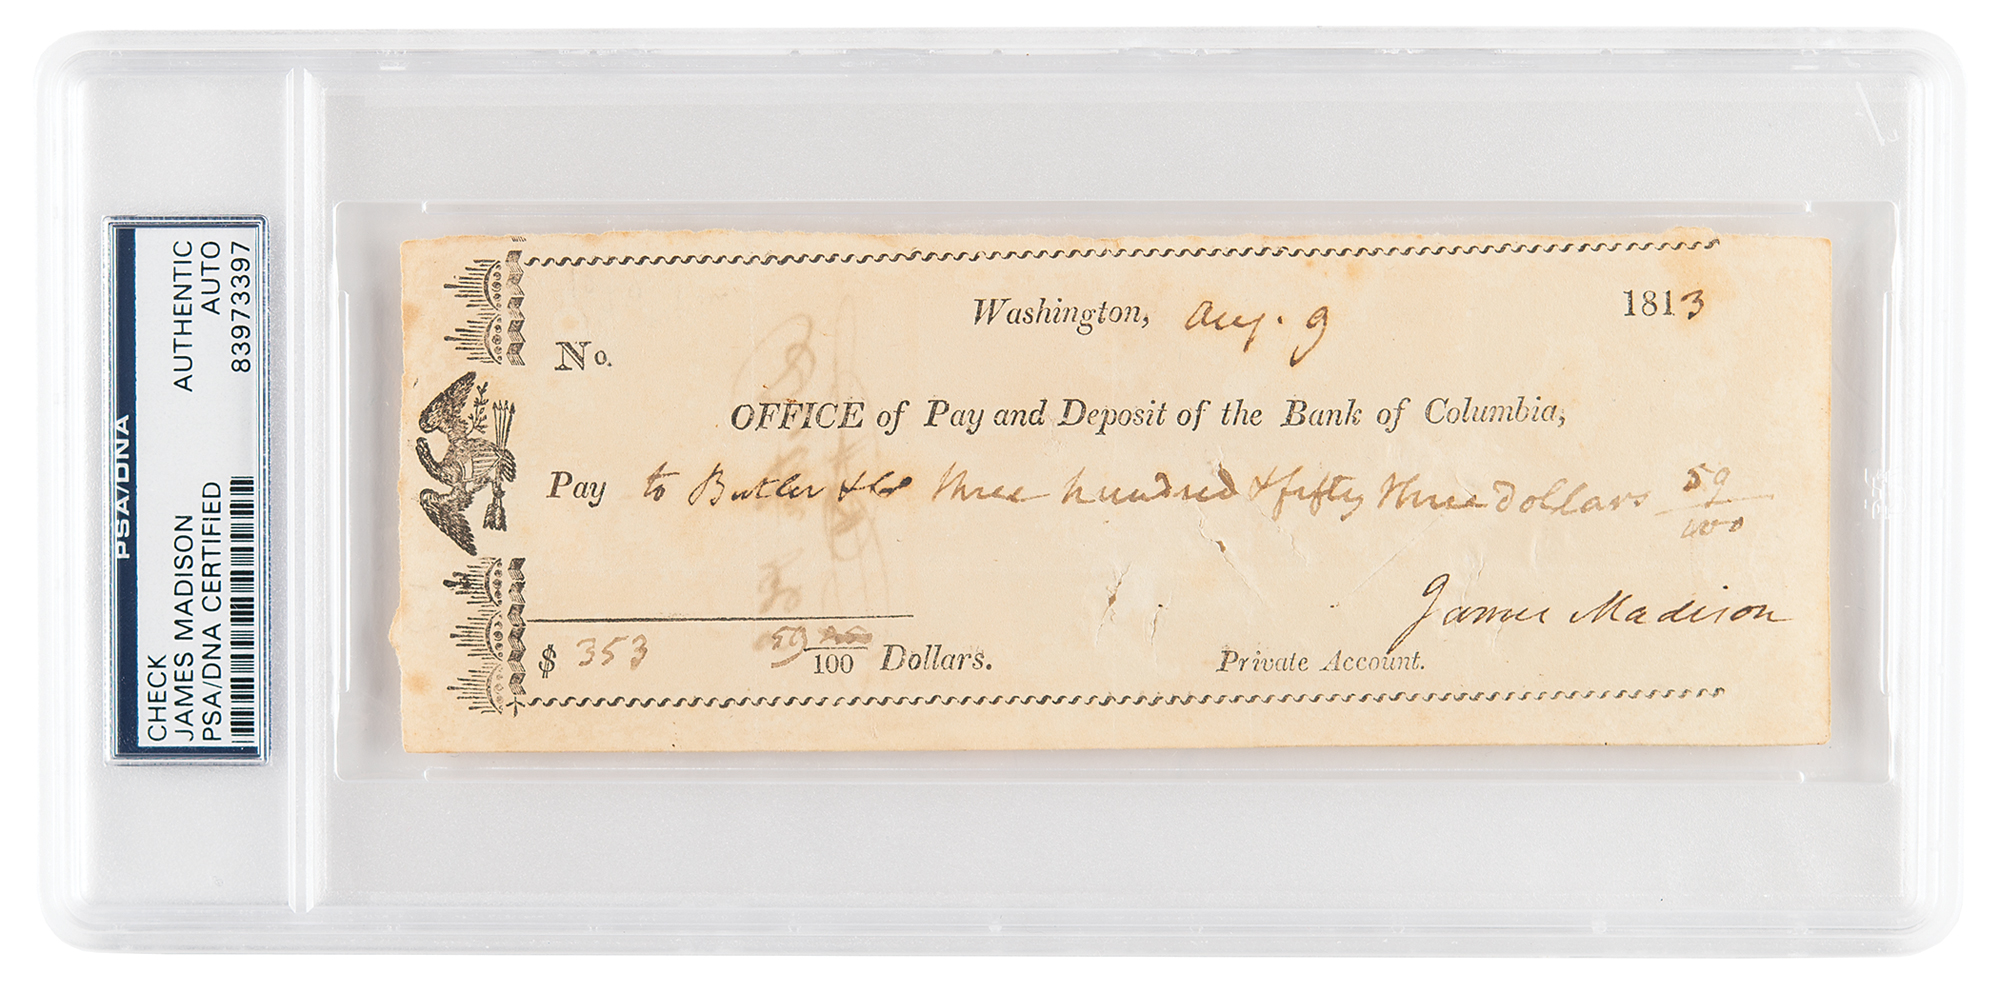 PSA/DNA
CHECK AUTHENTIC
JAMES MADISON AUTO
PSA/DNA CERTIFIED 83973397
Washington, Aug. 9 1813
No.
OFFICE of Pay and Deposit of the Bank of Columbia,
Pay to Butler & Co three hundred & fifty three Dollars 59/100
James Madison
$ 353 59/100 Dollars. Private Account.